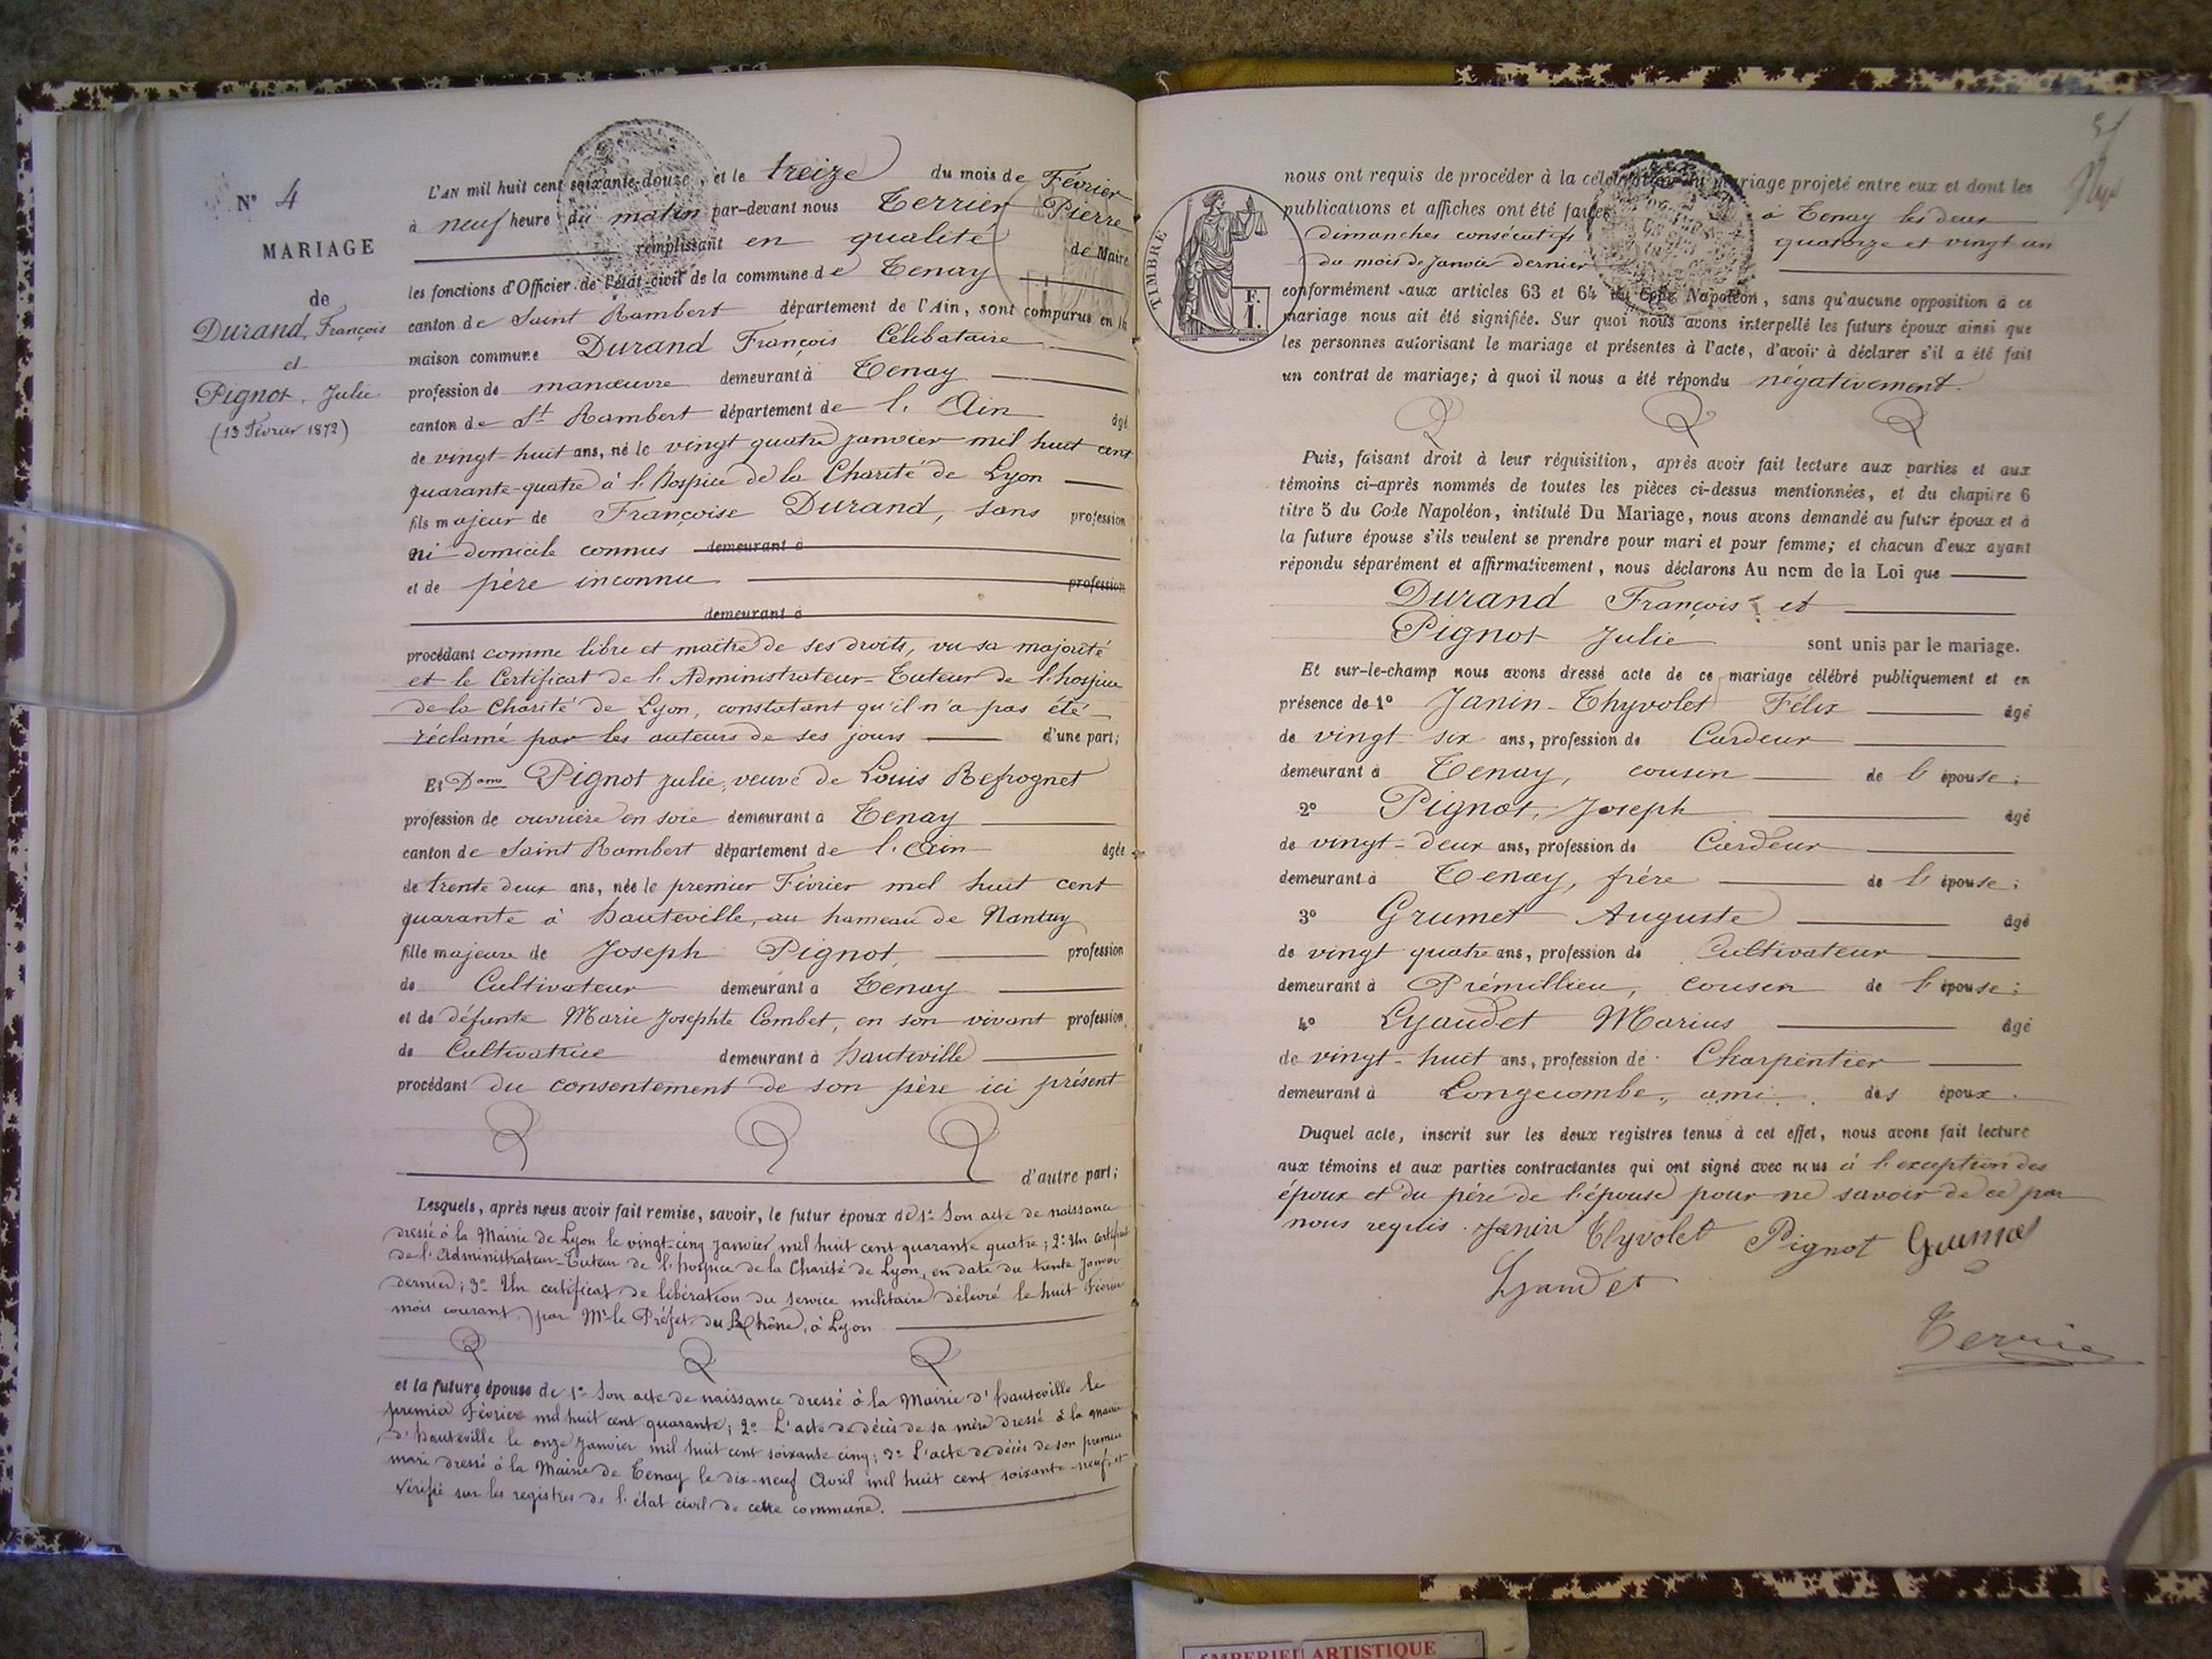 N° 4
MARIAGE
de
Durand, François
et
Pignot, Julie
(13 Février 1872)
L'AN mil huit cent soixante-douze, et le treize du mois de Février
à neuf heure du matin par-devant nous Terrier Pierre
remplissant en qualité de Maire
les fonctions d'Officier de l'état-civil de la commune de Tenay
canton de Saint Rambert département de l'Ain, sont comparus en la
maison commune Durand François Célibataire
profession de manœuvre demeurant à Tenay
canton de St Rambert département de l'Ain âgé
de vingt-huit ans, né le vingt quatre janvier mil huit cent
quarante-quatre à l'hospice de la Charité de Lyon
fils majeur de Françoise Durand, sans profession
ni domicile connus demeurant à
et de père inconnu profession
demeurant à
procédant comme libre et maître de ses droits, vu sa majorité
et le Certificat de l'Administrateur-Tuteur de l'hospice
de la Charité de Lyon, constatant qu'il n'a pas été
réclamé par les auteurs de ses jours d'une part;
Et Dame Pignot Julie, veuve de Louis Refrognet
profession de ouvrière en soie demeurant à Tenay
canton de Saint Rambert département de l'Ain âgée
de trente deux ans, née le premier Février mil huit cent
quarante à hauteville, au hameau de Nantuy
fille majeure de Joseph Pignot, profession
de Cultivateur demeurant à Tenay
et de défunte Marie Josephte Combet, en son vivant profession
de Cultivatrice demeurant à hauteville
procédant du consentement de son père ici présent
d'autre part;
Lesquels, après nous avoir fait remise, savoir, le futur époux de 1° Son acte de naissance
dressé à la Mairie de Lyon le vingt-cinq janvier mil huit cent quarante quatre; 2° Un certificat
de l'Administrateur-Tuteur de l'hospice de la Charité de Lyon, en date du trente Janvier
dernier; 3° Un certificat de libération du service militaire délivré le huit Février
mois courant, par Mr le Préfet du Rhône, à Lyon
et la future épouse de 1° Son acte de naissance dressé à la Mairie d'hauteville le
premier Février mil huit cent quarante; 2° L'acte de décès de sa mère dressé à la Mairie
d'hauteville le onze janvier mil huit cent soixante cinq; 3° L'acte de décès de son premier
mari dressé à la Mairie de Tenay le dix-neuf Avril mil huit cent soixante-neuf, et
vérifié sur les registres de l'état civil de cette commune.
nous ont requis de procéder à la célébration du mariage projeté entre eux et dont les
publications et affiches ont été faites à Tenay les deux
dimanches consécutifs quatorze et vingt un
du mois de janvier dernier
conformément aux articles 63 et 64 du Code Napoléon, sans qu'aucune opposition à ce
mariage nous ait été signifiée. Sur quoi nous avons interpellé les futurs époux ainsi que
les personnes autorisant le mariage et présentes à l'acte, d'avoir à déclarer s'il a été fait
un contrat de mariage; à quoi il nous a été répondu négativement.
TIMBRE
F.
I.
Puis, faisant droit à leur réquisition, après avoir fait lecture aux parties et aux
témoins ci-après nommés de toutes les pièces ci-dessus mentionnées, et du chapitre 6
titre 5 du Code Napoléon, intitulé Du Mariage, nous avons demandé au futur époux et à
la future épouse s'ils veulent se prendre pour mari et pour femme; et chacun d'eux ayant
répondu séparément et affirmativement, nous déclarons Au nom de la Loi que
Durand François et
Pignot Julie sont unis par le mariage.
Et sur-le-champ nous avons dressé acte de ce mariage célébré publiquement et en
présence de 1° Janin-Thyvolet Félix âgé
de vingt six ans, profession de Cardeur
demeurant à Tenay, cousin de l'épouse;
2° Pignot, Joseph âgé
de vingt-deux ans, profession de Cardeur
demeurant à Tenay, frère de l'épouse;
3° Grumet Auguste âgé
de vingt quatre ans, profession de Cultivateur
demeurant à Prémillieu, cousin de l'épouse;
4° Lyaudet Marius âgé
de vingt-huit ans, profession de Charpentier
demeurant à Longecombe, ami des époux.
Duquel acte, inscrit sur les deux registres tenus à cet effet, nous avons fait lecture
aux témoins et aux parties contractantes qui ont signé avec nous à l'exception des
époux et du père de l'épouse pour ne savoir de ce par
nous requis. Janin Thyvolet Pignot Grumet
Lyaudet
Terrier
AMBERIEU ARTISTIQUE